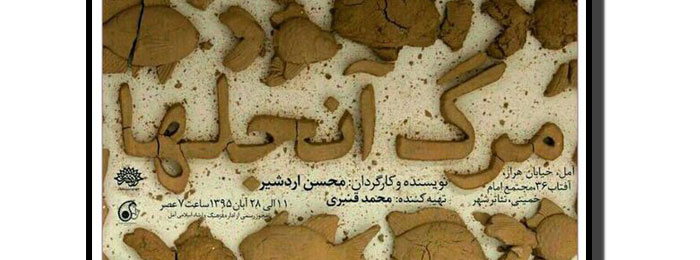 مرگ آنجلها
نویسنده و کارگردان: محسن اردشیر
تهیه کننده: محمد قنبری
۱۱ الی ۲۸ آبان ۱۳۹۵ ساعت ۷ عصر
آمل، خیابان هراز،
آفتاب ۳۶، مجتمع امام
خمینی، تئاتر شهر